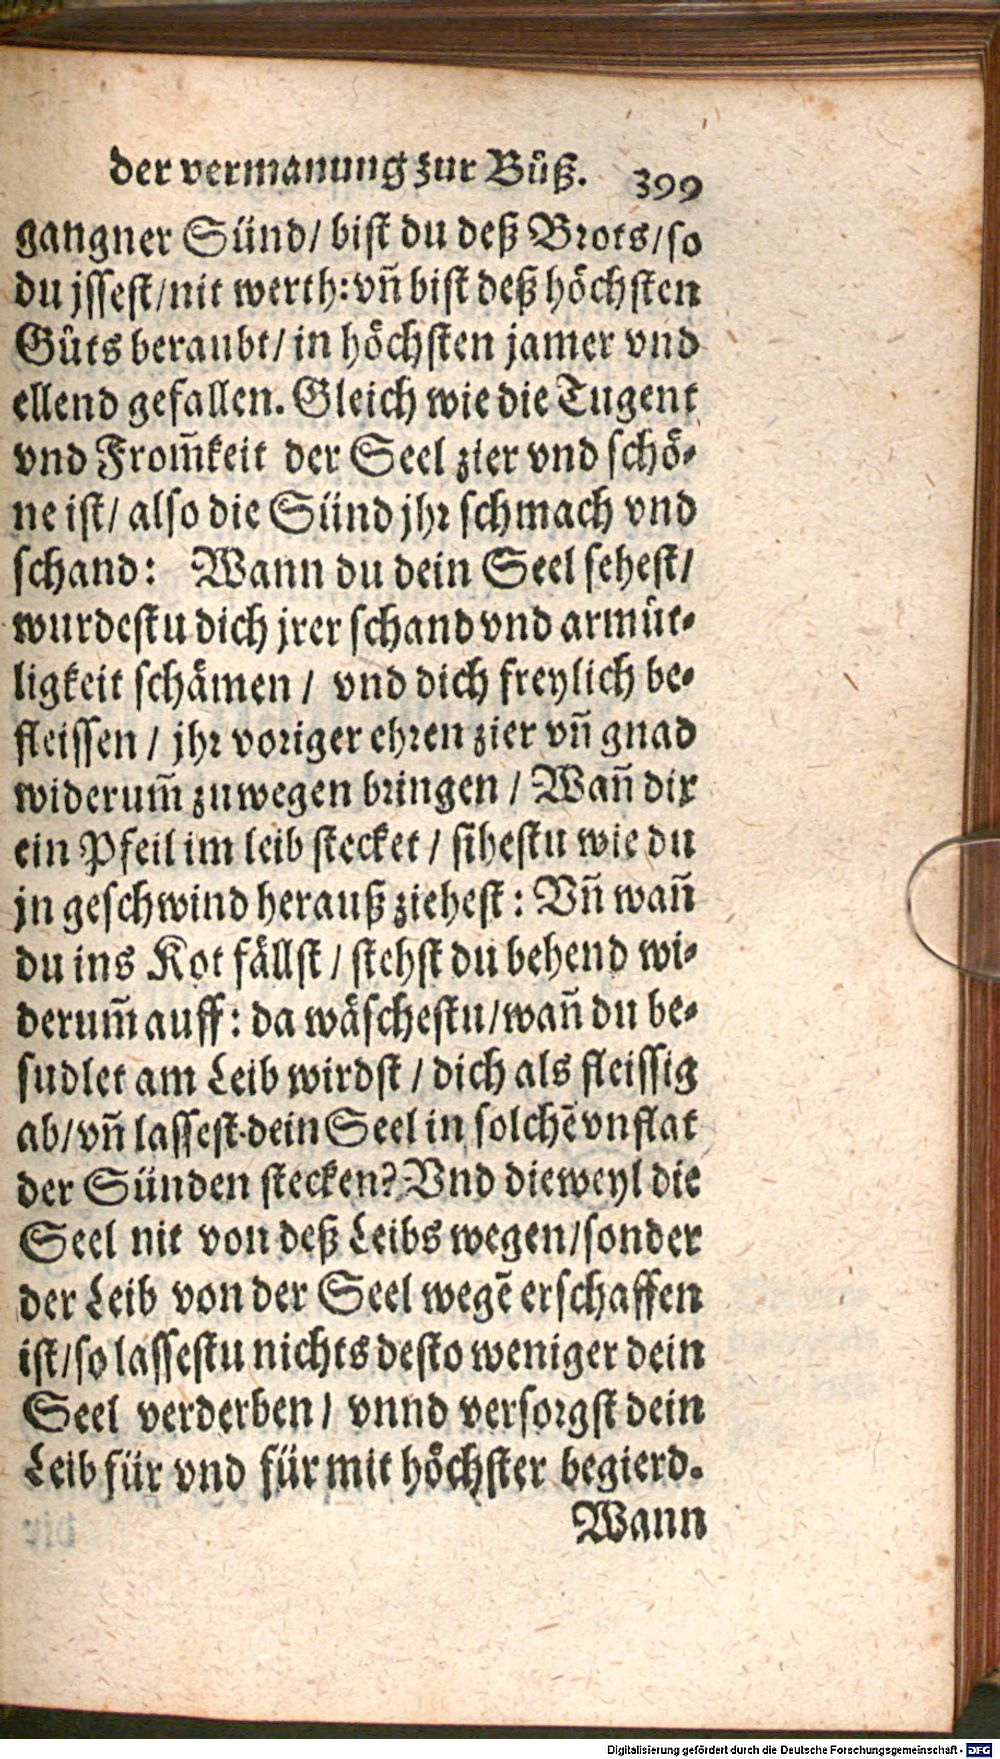 der vermanung zur Bůß. 399
gangner Sünd/ bist du deß Brots/ so
du jssest/ nit werth: vn̄ bist deß höchsten
Gůts beraubt/ in höchsten jamer vnd
ellend gefallen. Gleich wie die Tugent
vnd From̄keit der Seel zier vnd schö-
ne ist/ also die Sünd jhr schmach vnd
schand: Wann du dein Seel sehest/
wurdestu dich jrer schand vnd armůt-
ligkeit schämen / vnd dich freylich be-
fleissen / jhr voriger ehren zier vn̄ gnad
widerum̄ zuwegen bringen / Wan̄ dir
ein Pfeil im leib stecket / sihestu wie du
jn geschwind herauß ziehest: Vn̄ wan̄
du ins Kot fällst / stehst du behend wi-
derum̄ auff: da wäschestu/ wan̄ du be-
sudlet am Leib wirdst / dich als fleissig
ab/ vn̄ lassest dein Seel in solchē vnflat
der Sünden stecken? Vnd dieweyl die
Seel nit von deß Leibs wegen/ sonder
der Leib von der Seel wegē erschaffen
ist/ so lassestu nichts desto weniger dein
Seel verderben / vnnd versorgst dein
Leib für vnd für mit höchster begierd.
Wann
Digitalisierung gefördert durch die Deutsche Forschungsgemeinschaft - DFG